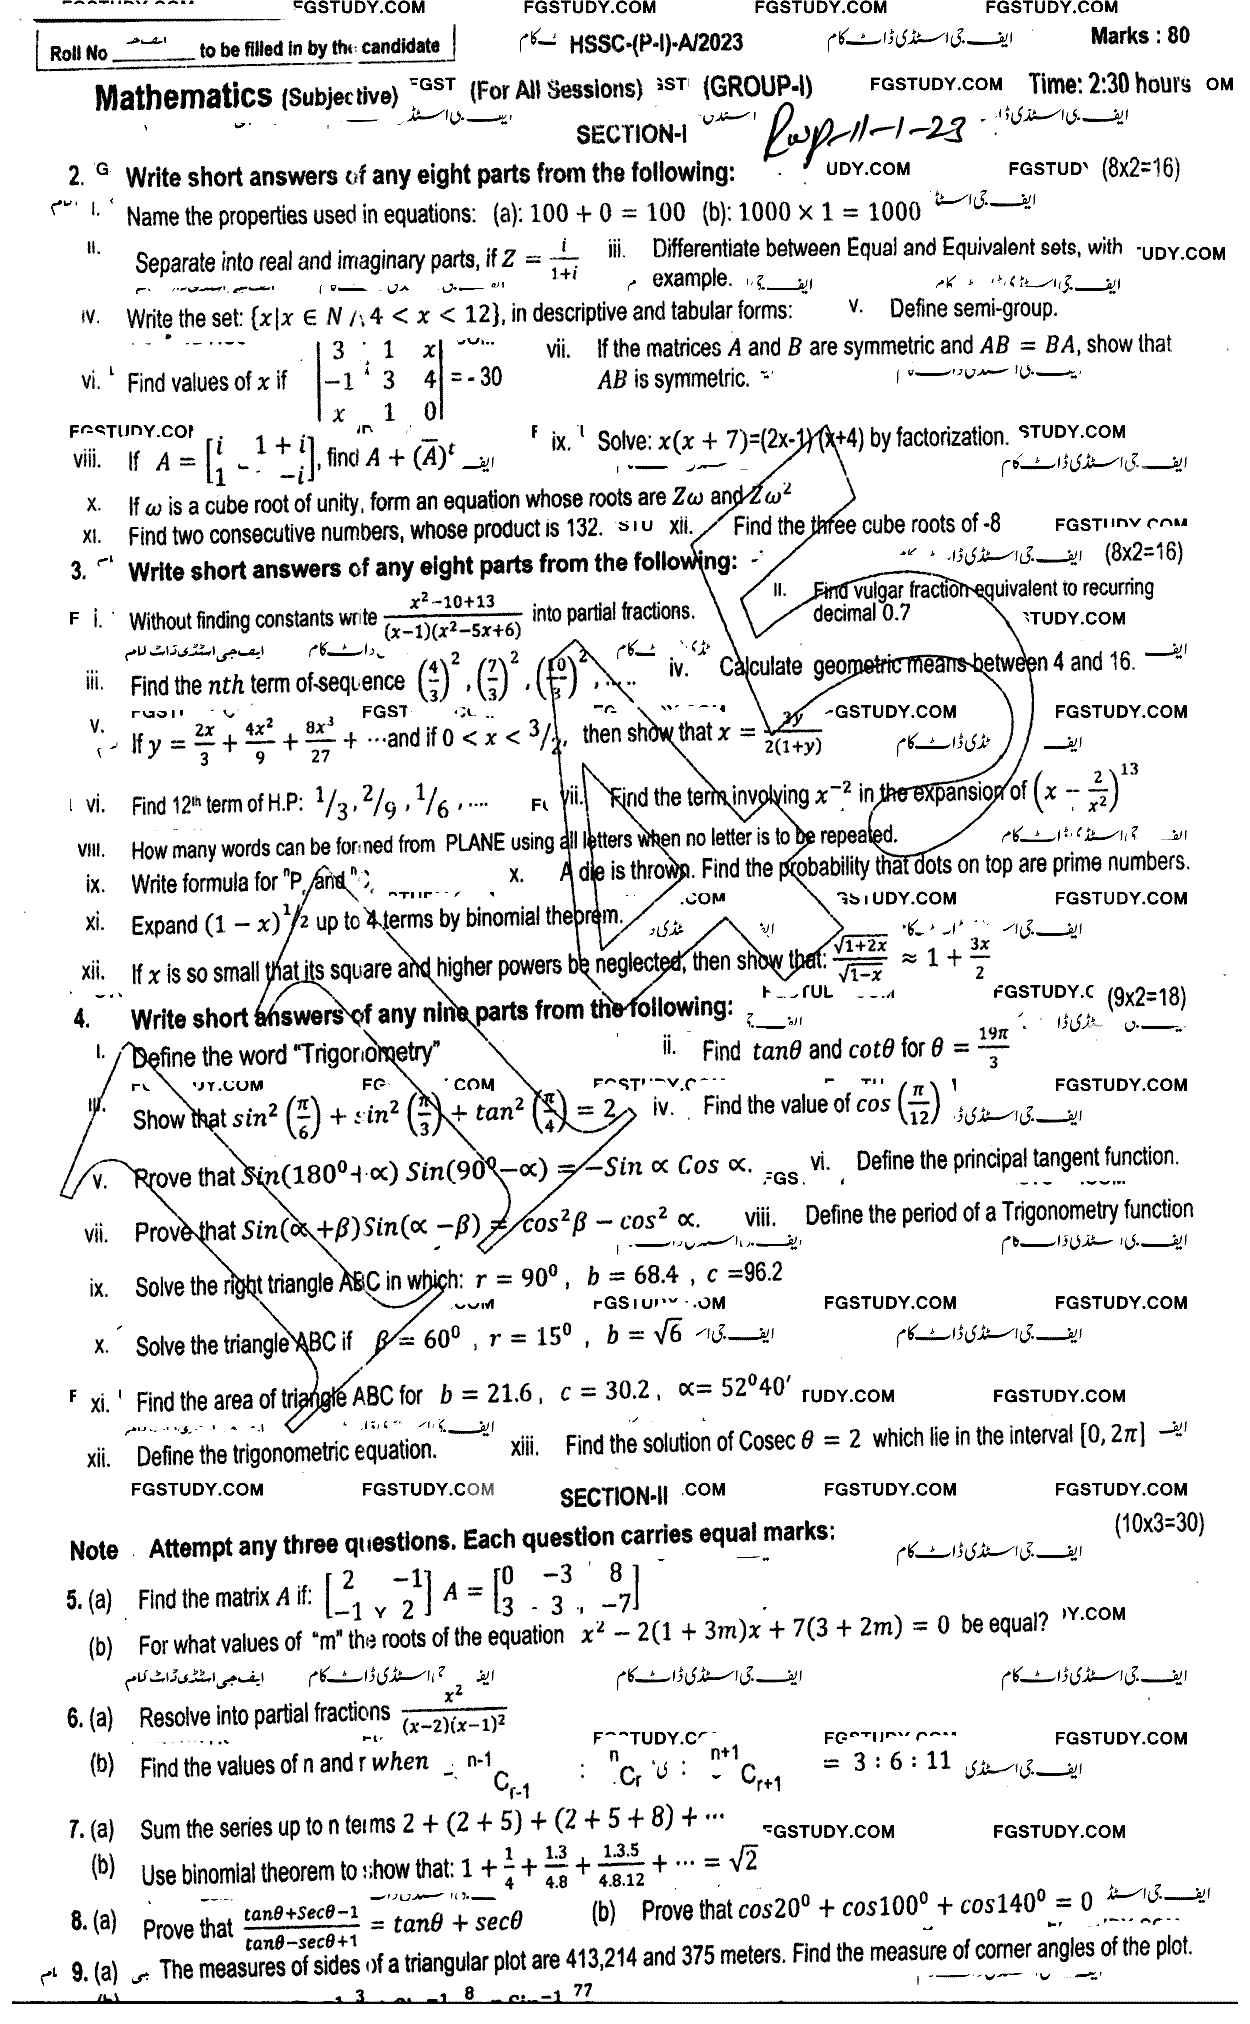 FGSTUDY.COM FGSTUDY.COM FGSTUDY.COM FGSTUDY.COM
Roll No ______ to be filled in by the candidate HSSC-(P-I)-A/2023 Marks : 80
Mathematics (Subjective) (For All Sessions) (GROUP-I) FGSTUDY.COM Time: 2:30 hours
SECTION-I Rwp-11-1-23
2. Write short answers of any eight parts from the following: UDY.COM (8x2=16)
i. Name the properties used in equations: (a): 100 + 0 = 100 (b): 1000 × 1 = 1000
ii. Separate into real and imaginary parts, if Z = i/(1+i) iii. Differentiate between Equal and Equivalent sets, with example.
iv. Write the set: {x|x ∈ N ∧ 4 < x < 12}, in descriptive and tabular forms: v. Define semi-group.
vi. Find values of x if |3 1 x; −1 3 4; x 1 0| = - 30 vii. If the matrices A and B are symmetric and AB = BA, show that AB is symmetric.
viii. If A = [i 1 + i; 1 −i], find A + (A̅)ᵗ ix. Solve: x(x + 7)=(2x-1)(x+4) by factorization.
x. If ω is a cube root of unity, form an equation whose roots are Zω and Zω²
xi. Find two consecutive numbers, whose product is 132. xii. Find the three cube roots of -8 FGSTUDY.COM
3. Write short answers of any eight parts from the following: (8x2=16)
i. Without finding constants write (x²−10+13)/((x−1)(x²−5x+6)) into partial fractions. ii. Find vulgar fraction equivalent to recurring decimal 0.7
iii. Find the nth term of sequence (4/3)², (7/3)², (10/3)², ..... iv. Calculate geometric means between 4 and 16.
v. If y = 2x/3 + 4x²/9 + 8x³/27 + ···and if 0 < x < 3/2, then show that x = 3y/(2(1+y))
vi. Find 12th term of H.P: 1/3, 2/9, 1/6, .... vii. Find the term involving x⁻² in the expansion of (x − 2/x²)¹³
viii. How many words can be formed from PLANE using all letters when no letter is to be repeated.
ix. Write formula for ⁿPᵣ and x. A die is thrown. Find the probability that dots on top are prime numbers.
xi. Expand (1 − x)^1/2 up to 4 terms by binomial theorem.
xii. If x is so small that its square and higher powers be neglected, then show that: √(1+2x)/√(1−x) ≈ 1 + 3x/2
4. Write short answers of any nine parts from the following: (9x2=18)
i. Define the word "Trigonometry" ii. Find tanθ and cotθ for θ = 19π/3
iii. Show that sin²(π/6) + sin²(π/3) + tan²(π/4) = 2 iv. Find the value of cos(π/12)
v. Prove that Sin(180⁰+∝) Sin(90⁰−∝) = −Sin ∝ Cos ∝. vi. Define the principal tangent function.
vii. Prove that Sin(∝ +β)Sin(∝ −β) = cos²β − cos² ∝. viii. Define the period of a Trigonometry function
ix. Solve the right triangle ABC in which: r = 90⁰, b = 68.4 , c =96.2
x. Solve the triangle ABC if β = 60⁰ , r = 15⁰ , b = √6
xi. Find the area of triangle ABC for b = 21.6 , c = 30.2 , ∝= 52⁰40′ FGSTUDY.COM
xii. Define the trigonometric equation. xiii. Find the solution of Cosec θ = 2 which lie in the interval [0, 2π]
FGSTUDY.COM FGSTUDY.COM SECTION-II FGSTUDY.COM FGSTUDY.COM
Note Attempt any three questions. Each question carries equal marks: (10x3=30)
5. (a) Find the matrix A if: [2 −1; −1 2] A = [0 −3 8; 3 3 −7]
(b) For what values of "m" the roots of the equation x² − 2(1 + 3m)x + 7(3 + 2m) = 0 be equal?
6. (a) Resolve into partial fractions x²/((x−2)(x−1)²)
(b) Find the values of n and r when ⁿ⁻¹Cᵣ₋₁ : ⁿCᵣ : ⁿ⁺¹Cᵣ₊₁ = 3 : 6 : 11
7. (a) Sum the series up to n terms 2 + (2 + 5) + (2 + 5 + 8) + ···
(b) Use binomial theorem to show that: 1 + 1/4 + 1.3/4.8 + 1.3.5/4.8.12 + ··· = √2
8. (a) Prove that (tanθ+Secθ−1)/(tanθ−secθ+1) = tanθ + secθ (b) Prove that cos20⁰ + cos100⁰ + cos140⁰ = 0
9. (a) The measures of sides of a triangular plot are 413,214 and 375 meters. Find the measure of corner angles of the plot.